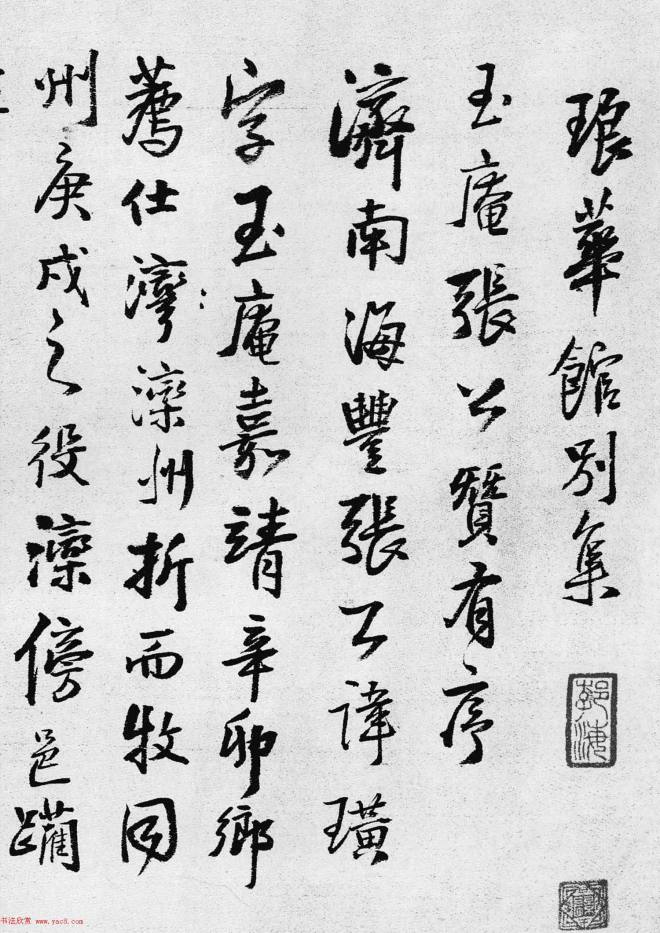 琅華館別集
玉庵張公贊有序
濟南海豐張公諱璜
字玉庵嘉靖辛卯鄉
薦仕灤州折而牧同
州庚戌之役灤傍邑躪
书法欣赏 www.yac8.com